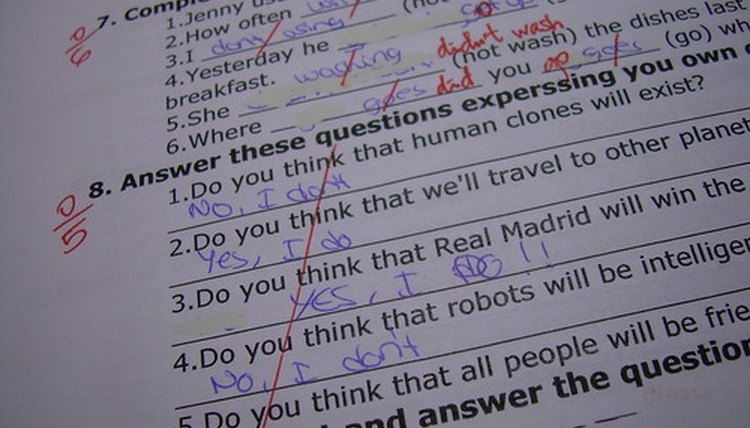 0/6 7. Compl
1.Jenny us
2.How often
3.I dont using
4.Yesterday he
breakfast. waching
5.She (not wash) the dishes last didn't wash
6.Where goes did you go goes (go) wh
0/5 8. Answer these questions experssing you own
1.Do you think that human clones will exist?
No, I dont
2.Do you think that we'll travel to other planet
Yes, I do
3.Do you think that Real Madrid will win the
YES, I DO !!
4.Do you think that robots will be intelligen
No, I don't
5.Do you think that all people will be frie
and answer the question